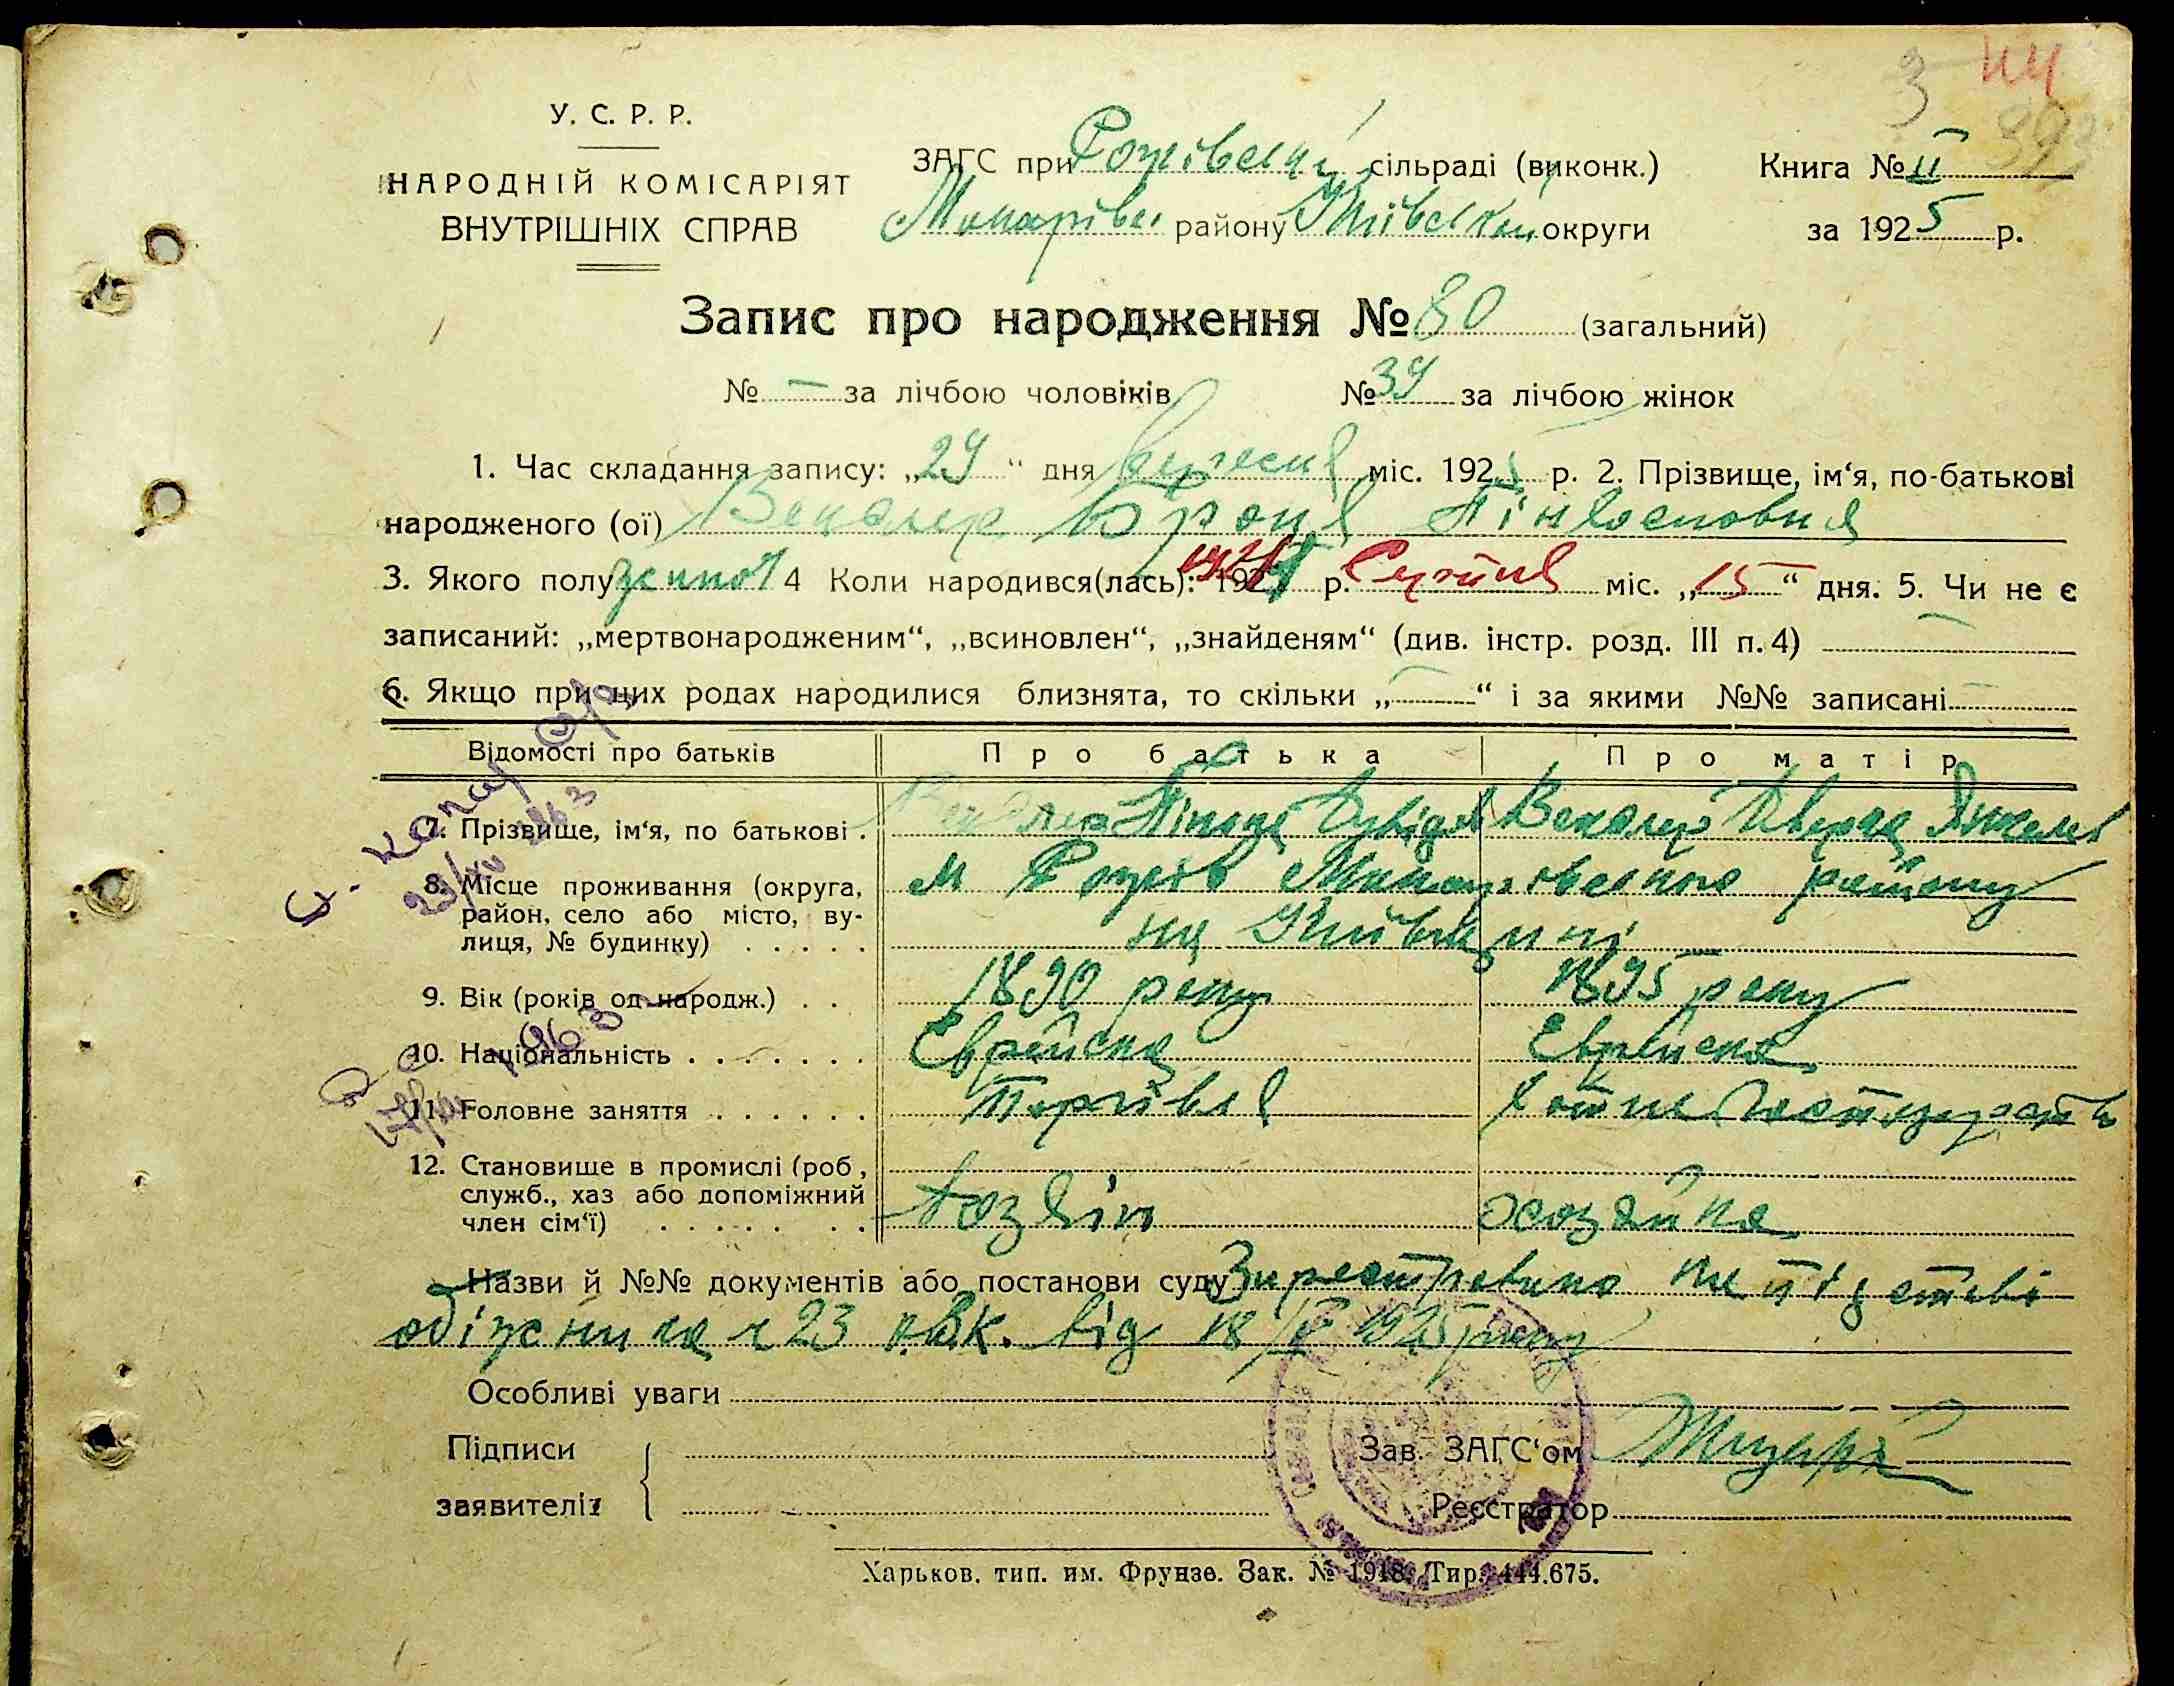 3 44
393
У. С. Р. Р.
НАРОДНІЙ КОМІСАРІЯТ
ВНУТРІШНІХ СПРАВ
ЗАГС при Рожівській сільраді (виконк.) Книга № II
Макарівськ району Київської округи за 1925 р.
Запис про народження № 80 (загальний)
№ — за лічбою чоловіків № 39 за лічбою жінок
1. Час складання запису: „29“ дня Вересня міс. 1925 р. 2. Прізвище, ім‘я, по-батькові
народженого (ої) Векслер Броня Пінхасовна
3. Якого полу жіночої 4 Коли народився(лась): 192 р. Серпня міс. „15“ дня. 5. Чи не є
записаний: „мертвонародженим“, „всиновлен“, „знайденям“ (див. інстр. розд. III п. 4) —
6. Якщо при цих родах народилися близнята, то скільки „—“ і за якими №№ записані —
Відомості про батьків Про батька Про матір
7. Прізвище, ім‘я, по батькові . Векслер Пінхас Векслер Двейра
8. Місце проживання (округа, м Рожів Макарівського району
район, село або місто, ву-
лиця, № будинку) . . . . . на Київщині
9. Вік (років од народж.) . . 1890 року 1895 року
10. Національність . . . . . . . Єврейська Єврейська
11. Головне заняття . . . . . . Торгівля Хатнє господарств
12. Становище в промислі (роб,
служб., хаз або допоміжний
член сім‘ї) . . . . . . . Хозяїн хозяйка
Назви й №№ документів або постанови суду Зареєстровано на підставі
обіжника ч 23 від 18/ 1925 року
Особливі уваги —
Підписи Зав. ЗАГС‘ом
заявителів Реєстратор
Харьков. тип. им. Фрунзе. Зак. № 1918. Тир. 444.675.